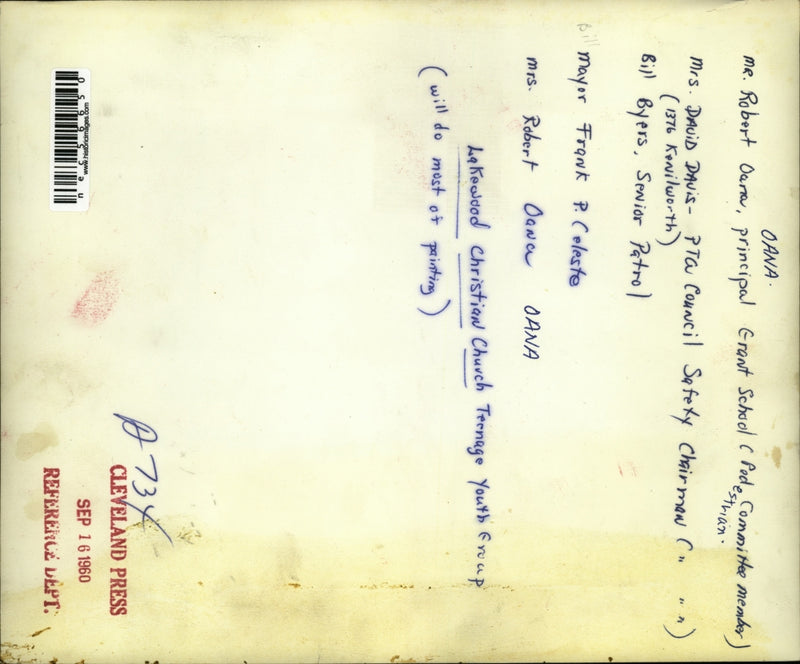 OANA.
Mr. Robert Oana, principal Grant School (Pedesthian. Committee member)
Mrs. DAVID DAVIS - PTA Council Safety Chairman ( " " " )
(1376 Kenilworth)
Bill Byers, Senior Patrol
Bill
Mayor Frank P. Celeste
Mrs. Robert Oana OANA
Lakewood Christian Church Teenage Youth Group
(will do most of painting)
A 734
CLEVELAND PRESS
SEP 16 1960
REFERENCE DEPT.
www.historicimages.com
nec56650